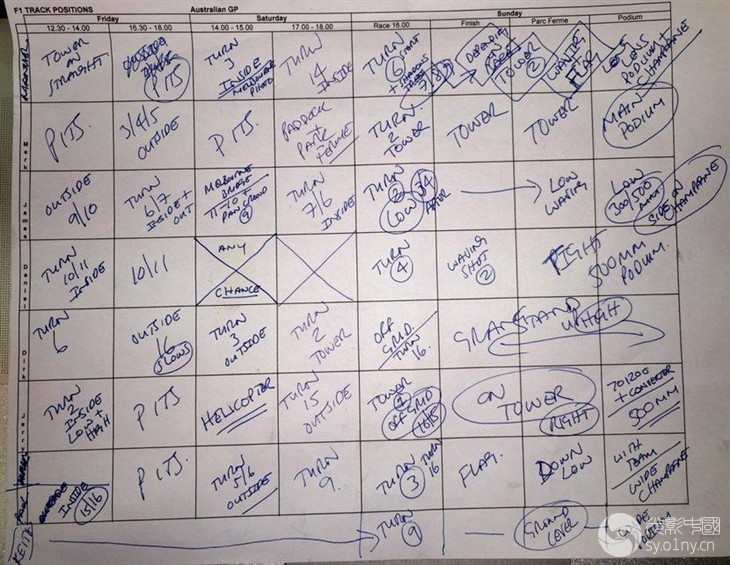 F1 TRACK POSITIONS
Friday
Australian GP
Saturday
Sunday
12.30 - 14.00
16.30 - 18.00
14.00 - 15.00
17.00 - 18.00
Race 16.00
Finish
Parc Ferme
Podium
TOWER
ON
STRAIGHT
PITS
TURN
3
INSIDE
MELBOURNE
TURN
4
INSIDE
TURN
6
DEPENDING
ON
TOWER
2
WAVING
FLAG
LENS
PODIUM +
CHAMPANE
Mark
PITS.
3/4/5
OUTSIDE
PITS.
PADDOCK
+
PARC
FERME
TURN
2
TOWER
TOWER
TOWER
MAIN
PODIUM
James
OUTSIDE
9/10
TURN
6/7
INSIDE +
OUT
MELBOURNE
BRIDGE
11 TO 10 +
PAN CROWD
9
TURN
7/6
INSIDE
TURN
2
LOW
3/4
AFTER
LOW
WAVING
LOW
300/500
SIDE ON
CHAMPANE
Daniel
TURN
10/11
INSIDE
10/11
ANY
CHANCE
TURN
4
WAVING
SHOT
2
RIGHT
500MM
PODIUM.
Dirk
TURN
6
OUTSIDE
16
SLOWS
TURN
3
OUTSIDE
TURN
2
TOWER
OFF
GRID
TURN
16.
GRANDSTAND
UP HIGH
Jerry
TURN
2
INSIDE
LOW +
HIGH
PITS
HELICOPTER
TURN
15
OUTSIDE
TOWER
1
OFF GRID
ON
TOWER
RIGHT
70 200
+ CONVERTER
500MM
INSIDE
15/16
PITS
TURN
5/6
OUTSIDE
TURN
9
TURN
3
TURN
16
FLAG.
DOWN
LOW
WITH
TEAM
WIDE
CHAMPANE
KEITH
TURN
9
GROUND
LEVEL
PODIUM
sy.o1ny.cn